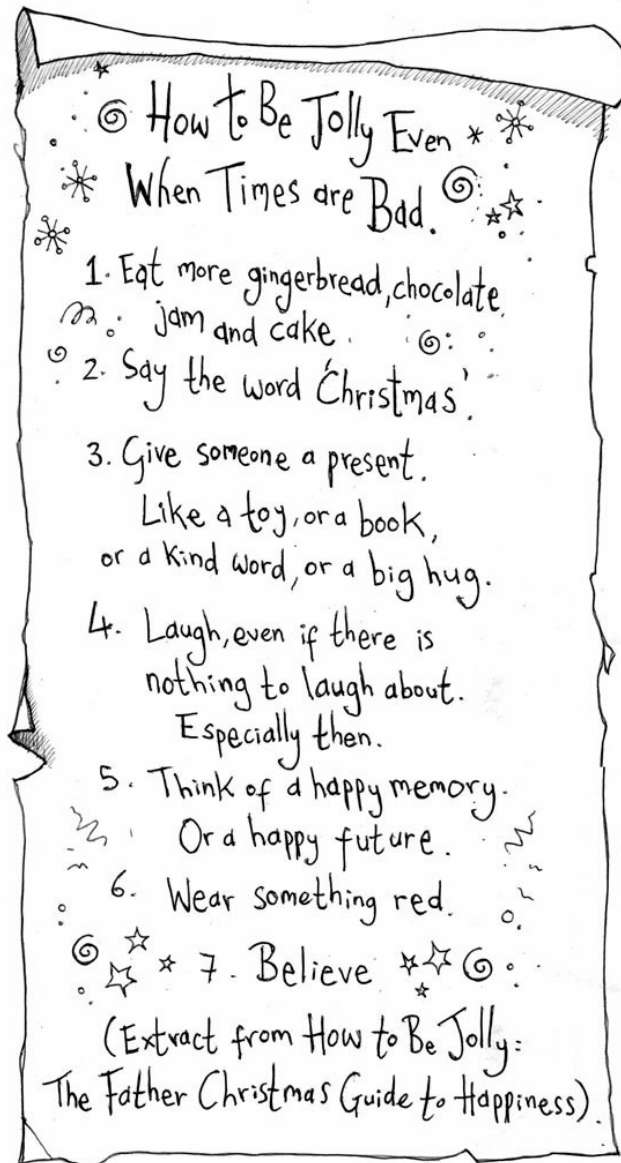 How to Be Jolly Even
When Times are Bad.
1. Eat more gingerbread, chocolate
jam and cake.
2. Say the word 'Christmas'.
3. Give someone a present.
Like a toy, or a book,
or a kind word, or a big hug.
4. Laugh, even if there is
nothing to laugh about.
Especially then.
5. Think of a happy memory.
Or a happy future.
6. Wear something red.
7. Believe
(Extract from How to Be Jolly:
The Father Christmas Guide to Happiness).